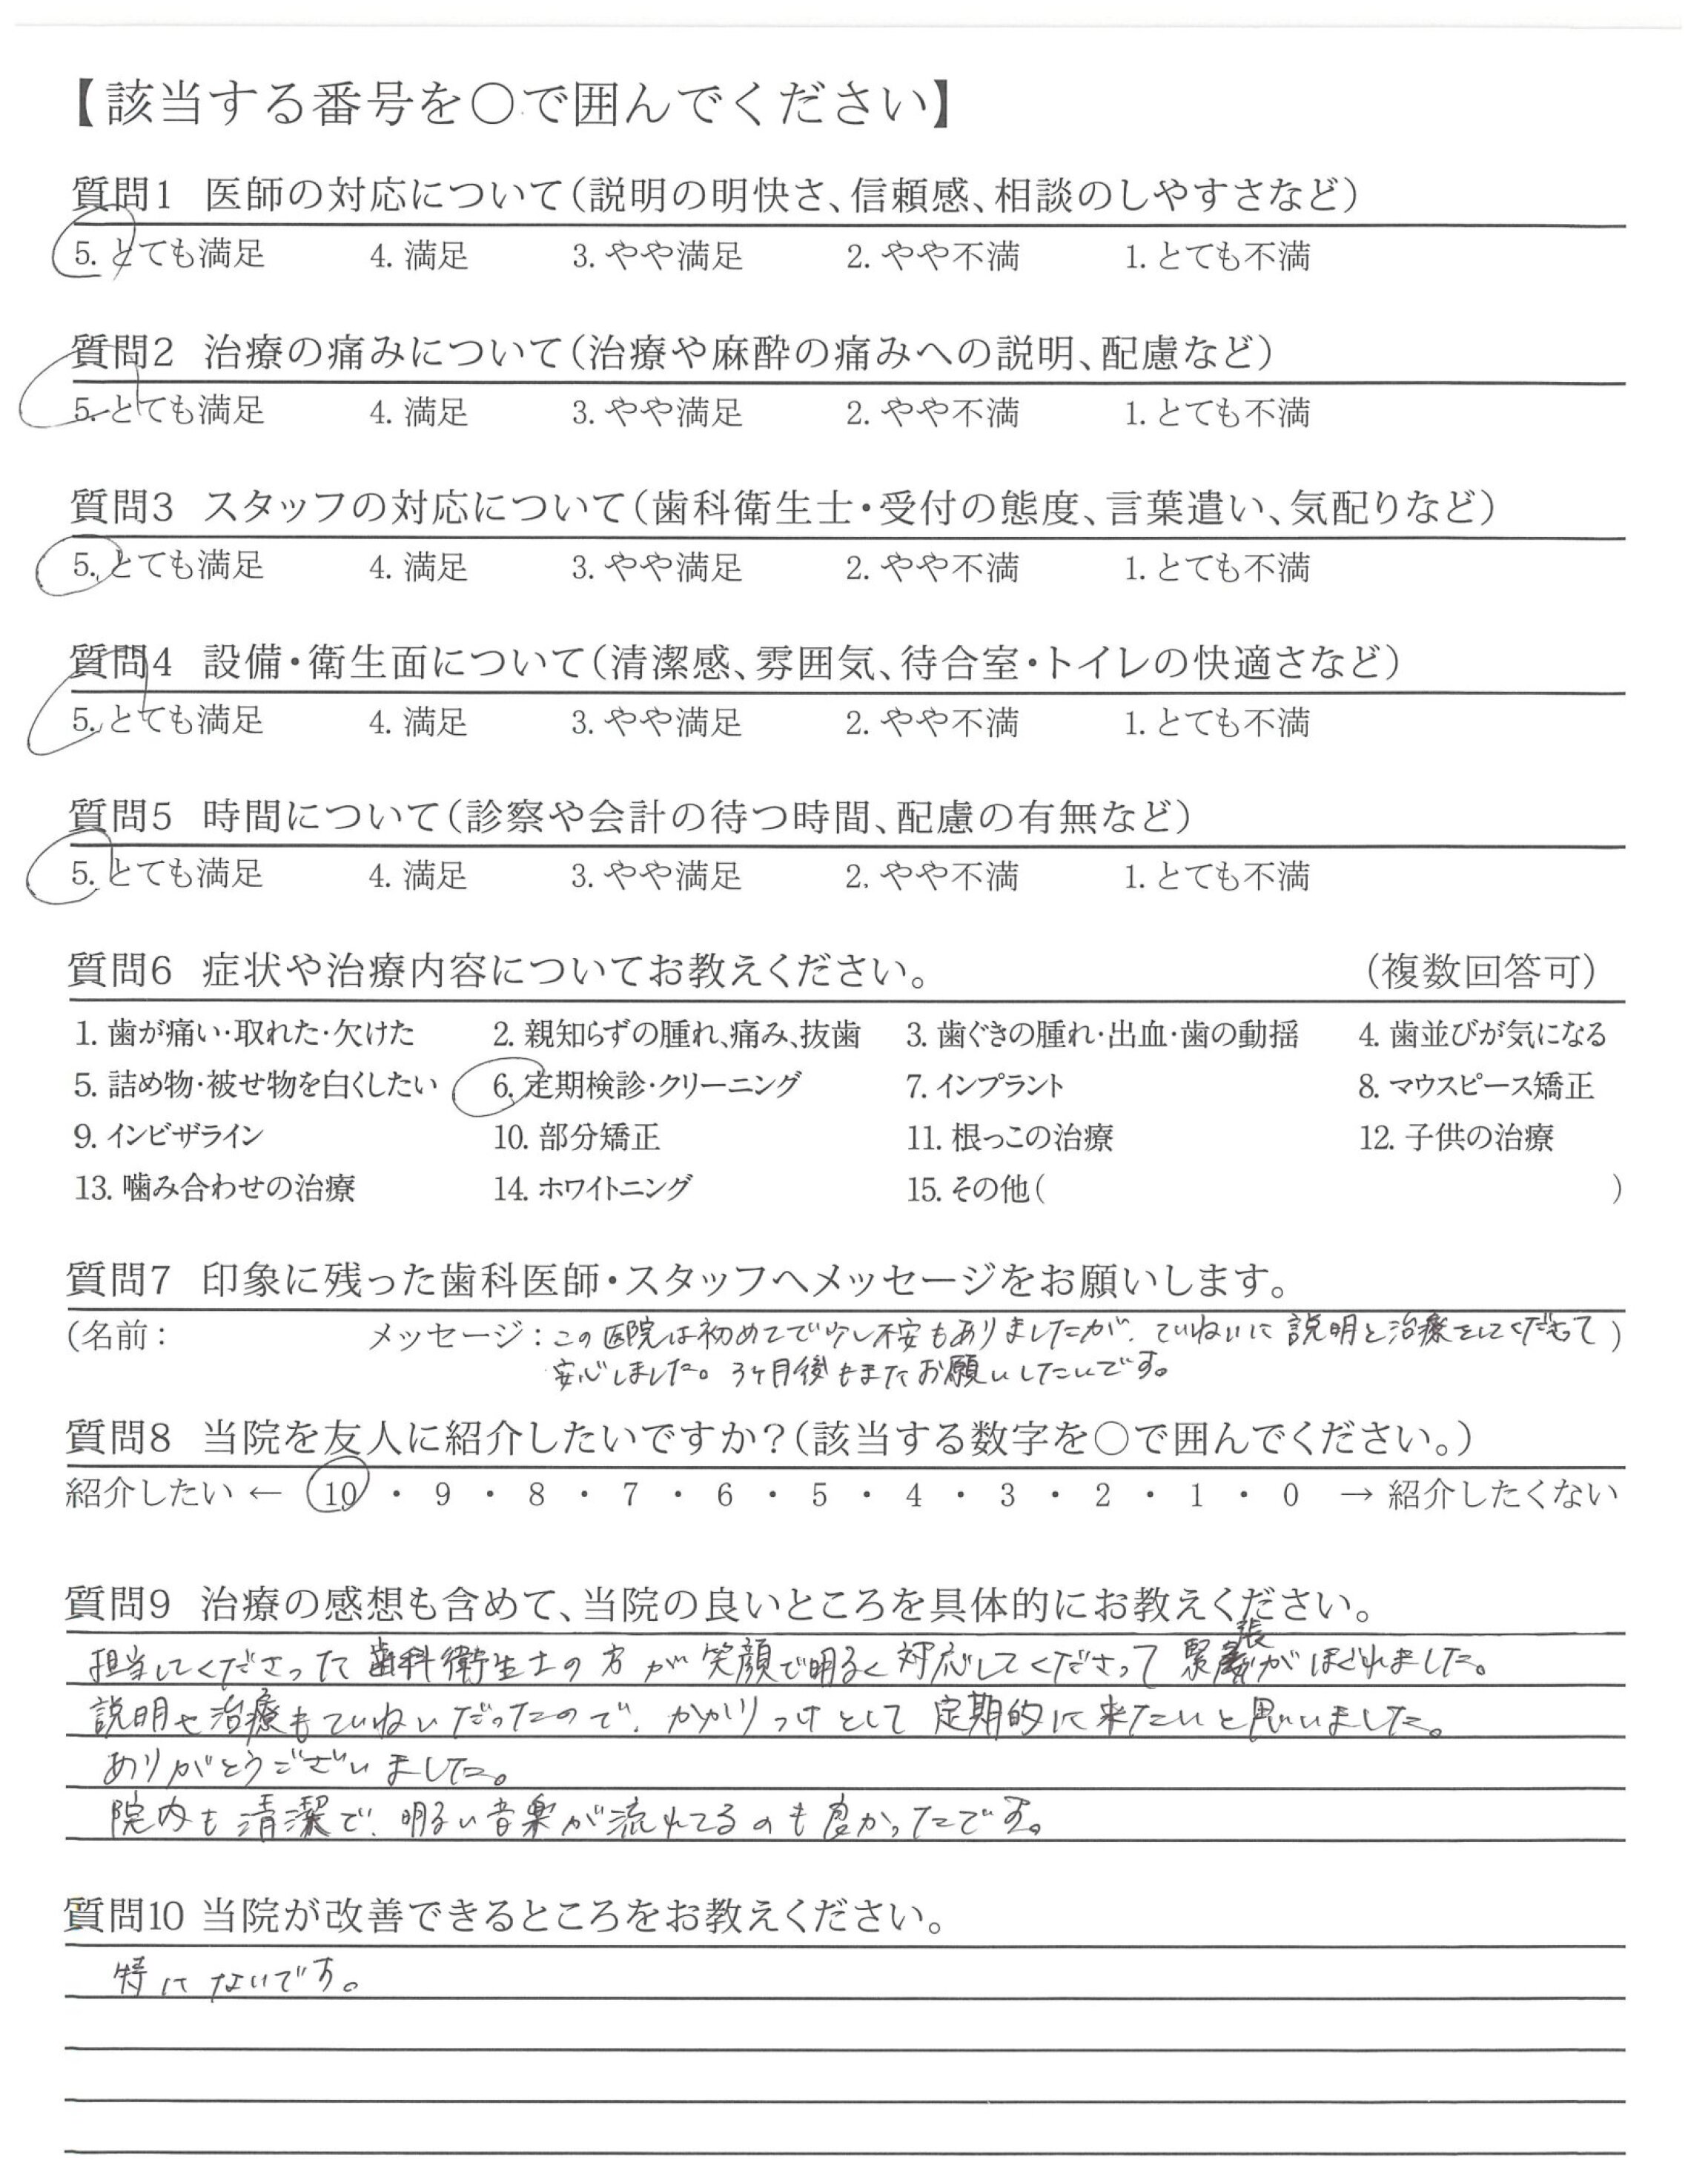 【該当する番号を〇で囲んでください】
質問1 医師の対応について(説明の明快さ、信頼感、相談のしやすさなど)
5. とても満足 4. 満足 3. やや満足 2. やや不満 1. とても不満
質問2 治療の痛みについて(治療や麻酔の痛みへの説明、配慮など)
5. とても満足 4. 満足 3. やや満足 2. やや不満 1. とても不満
質問3 スタッフの対応について(歯科衛生士・受付の態度、言葉遣い、気配りなど)
5. とても満足 4. 満足 3. やや満足 2. やや不満 1. とても不満
質問4 設備・衛生面について(清潔感、雰囲気、待合室・トイレの快適さなど)
5. とても満足 4. 満足 3. やや満足 2. やや不満 1. とても不満
質問5 時間について(診察や会計の待つ時間、配慮の有無など)
5. とても満足 4. 満足 3. やや満足 2. やや不満 1. とても不満
質問6 症状や治療内容についてお教えください。 (複数回答可)
1. 歯が痛い・取れた・欠けた 2. 親知らずの腫れ、痛み、抜歯 3. 歯ぐきの腫れ・出血・歯の動揺 4. 歯並びが気になる
5. 詰め物・被せ物を白くしたい 6. 定期検診・クリーニング 7. インプラント 8. マウスピース矯正
9. インビザライン 10. 部分矯正 11. 根っこの治療 12. 子供の治療
13. 噛み合わせの治療 14. ホワイトニング 15. その他( )
質問7 印象に残った歯科医師・スタッフへメッセージをお願いします。
(名前: メッセージ:この医院は初めてで少し不安もありましたが、ていねいに説明と治療をしてくださって)
安心しました。3ヶ月後もまたお願いしたいです。
質問8 当院を友人に紹介したいですか?(該当する数字を〇で囲んでください。)
紹介したい ← 10 ・ 9 ・ 8 ・ 7 ・ 6 ・ 5 ・ 4 ・ 3 ・ 2 ・ 1 ・ 0 → 紹介したくない
質問9 治療の感想も含めて、当院の良いところを具体的にお教えください。
担当してくださった歯科衛生士の方が笑顔で明るく対応してくださって緊張がほぐれました。
説明も治療もていねいだったので、かかりつけとして定期的に来たいと思いました。
ありがとうございました。
院内も清潔で、明るい音楽が流れてるのも良かったです。
質問10 当院が改善できるところをお教えください。
特にないです。